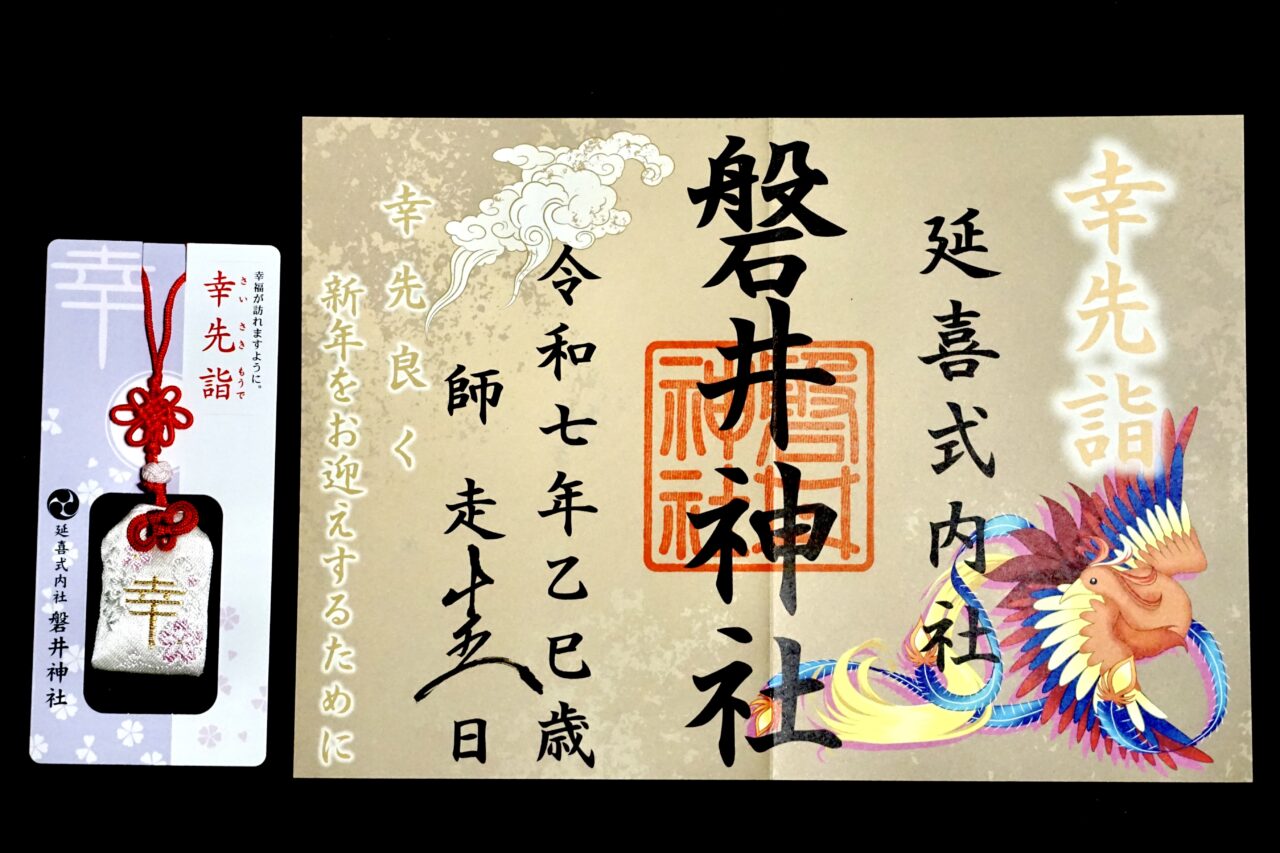 幸
幸福が訪れますように。
幸先詣
さいさきもうで
延喜式内社 磐井神社
幸
幸先詣
延喜式内社
磐井神社
磐井
神社
令和七年乙巳歳
師走十五日
幸先良く
新年をお迎えするために